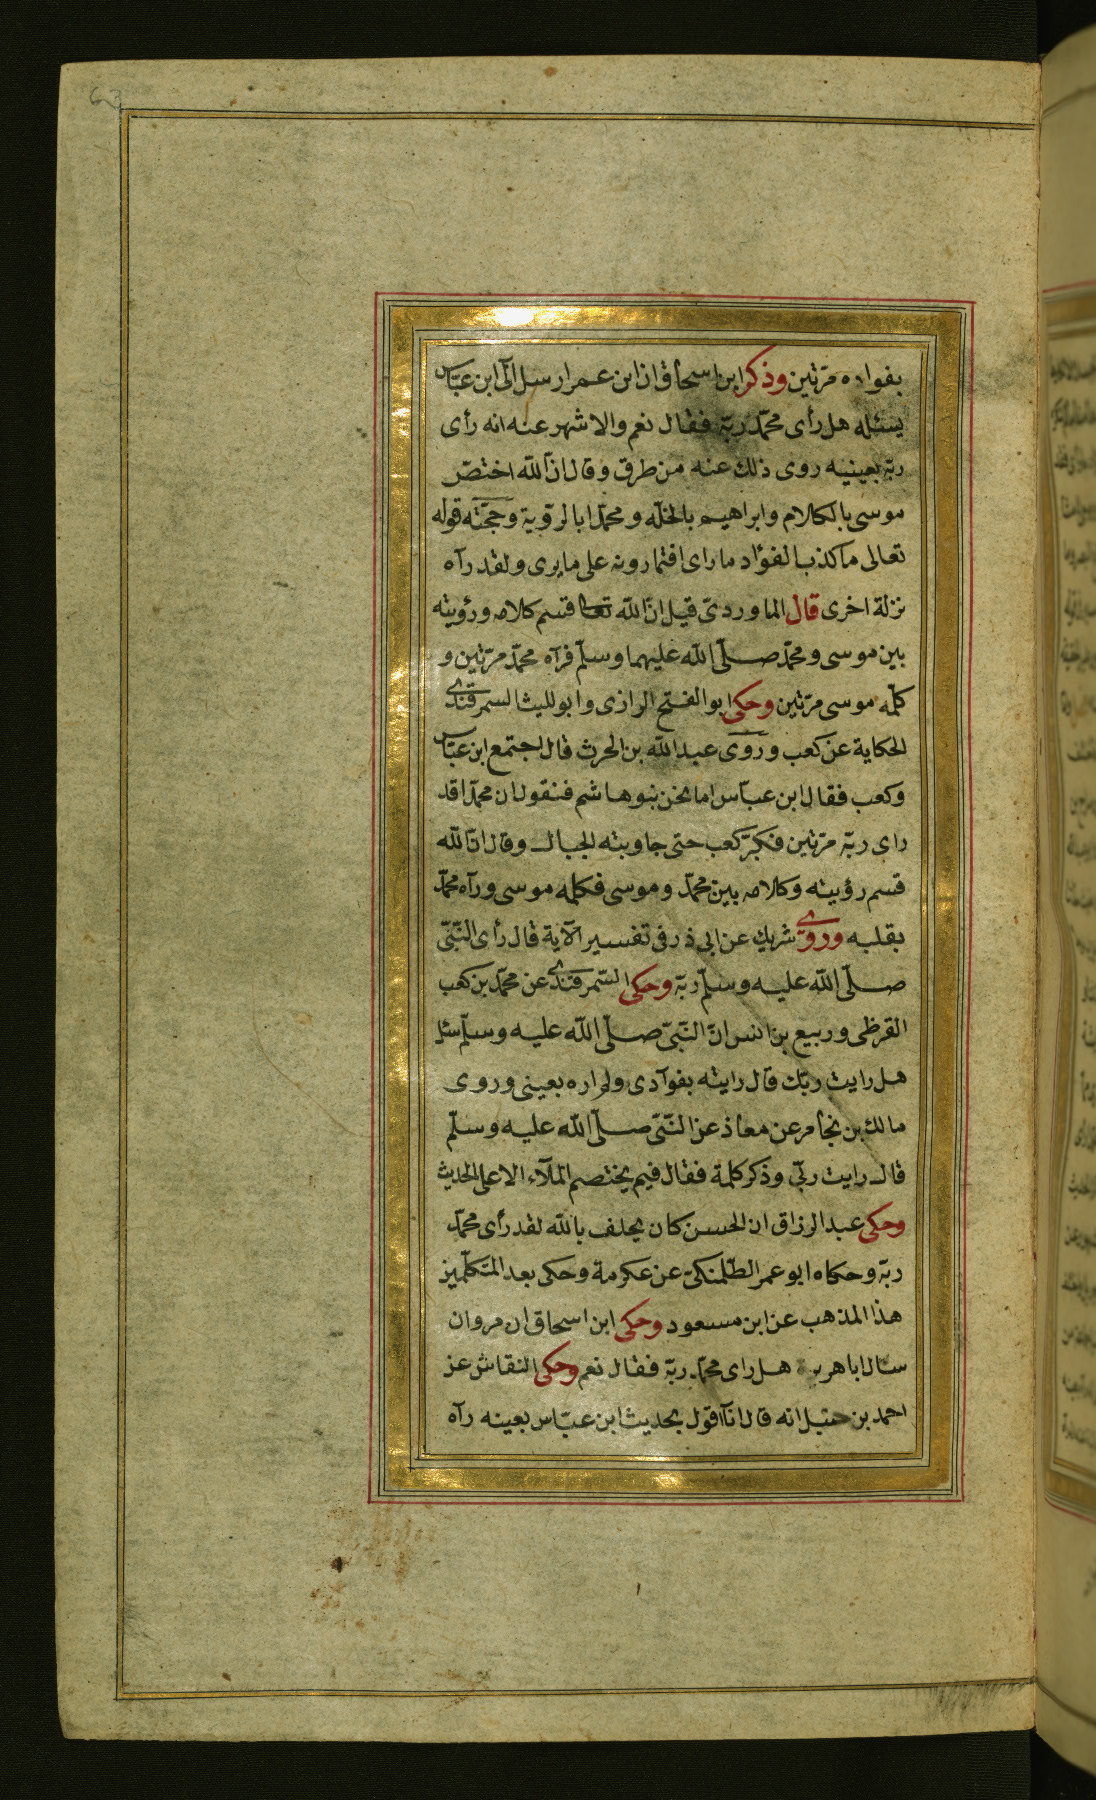 بفواده مرّتين وذكر ابن اسحاق ان ابن عمر ارسل الى ابن عبّاس
يسئله هل رأى محمّد ربّه فقال نعم والاشهر عنه انه رأى
ربّه بعينيه روى ذلك عنه من طرق وقال انّ اللّه اختصّ
موسى بالكلام وابراهيم بالخلّه ومحمّدا بالرؤية وحجّته قوله
تعالى ما كذب الفؤاد ما راى افتمارونه على ما يرى ولقد رآه
نزلة اخرى قال الماوردىّ قيل انّ اللّه تعالى قسم كلامه ورؤيته
بين موسى ومحمّد صلّى اللّه عليهما وسلّم فرآه محمّد مرّتين و
كلّمه موسى مرّتين وحكى ابو الفتح الرازى وابو لليث السمرقندى
الحكاية عن كعب وروى عبد اللّه بن الحرث قال اجتمع ابن عبّاس
وكعب فقال ابن عبّاس اما نحن بنو هاشم فنقول ان محمّدا قد
راى ربّه مرّتين فكبّر كعب حتى جاوبته الجبال وقال انّ اللّه
قسم رؤيته وكلامه بين محمّد وموسى فكلمه موسى ورآه محمّد
بقلبه وروى شريك عن ابى ذر فى تفسير الآية قال رأى النّبىّ
صلّى اللّه عليه وسلّم ربّه وحكى السّمرقندى عن محمّد بن كعب
القرظى وربيع بن انس انّ النّبىّ صلّى اللّه عليه وسلّم سئل
هل رايت ربّك قال رايته بفوآدى ولم اره بعينى وروى
مالك بن يخامر عن معاذ عن النّبىّ صلّى اللّه عليه وسلّم
قال رايت ربّى وذكر كلمة فقال فيم يختصم الملآء الاعلى الحديث
وحكى عبد الرزاق ان الحسن كان يحلف باللّه لقد رأى محمّد
ربّه وحكاه ابو عمر الطّلمنكىّ عن عكرمة وحكى بعد المتكلّمين
هذا المذهب عن ابن مسعود وحكى ابن اسحاق ان مروان
سئال ابا هريرة هل راى محمّد ربّه فقال نعم وحكى النقاش عن
احمد بن حنبل انه قال انآ اقول بحديث ابن عبّاس بعينه رآه